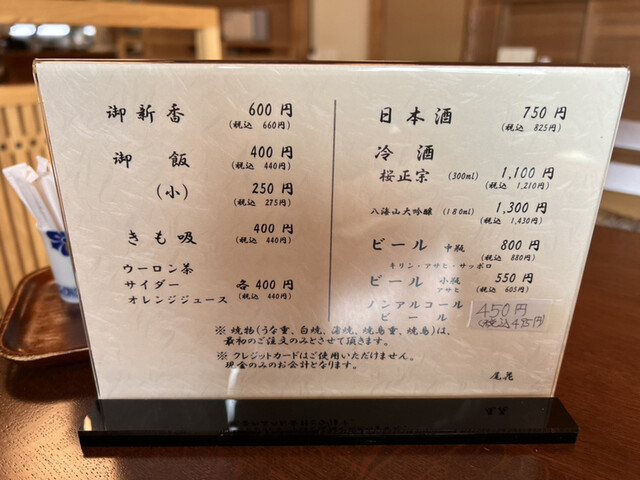 御新香 600円
(税込 660円)
御飯 400円
(税込 440円)
(小) 250円
(税込 275円)
きも吸 400円
(税込 440円)
ウーロン茶
サイダー 各400円
オレンジジュース (税込 440円)
日本酒 750円
(税込 825円)
冷酒
桜正宗 (300ml) 1,100円
(税込 1,210円)
八海山大吟醸 (180ml) 1,300円
(税込 1,430円)
ビール 中瓶 800円
(税込 880円)
キリン・アサヒ・サッポロ
ビール 小瓶 550円
アサヒ (税込 605円)
ノンアルコール 450円
ビール (税込495円)
※ 焼物(うな重、白焼、蒲焼、焼鳥重、焼鳥)は、
最初のご注文のみとさせて頂きます。
※ クレジットカードはご使用いただけません。
現金のみのお会計となります。
尾花